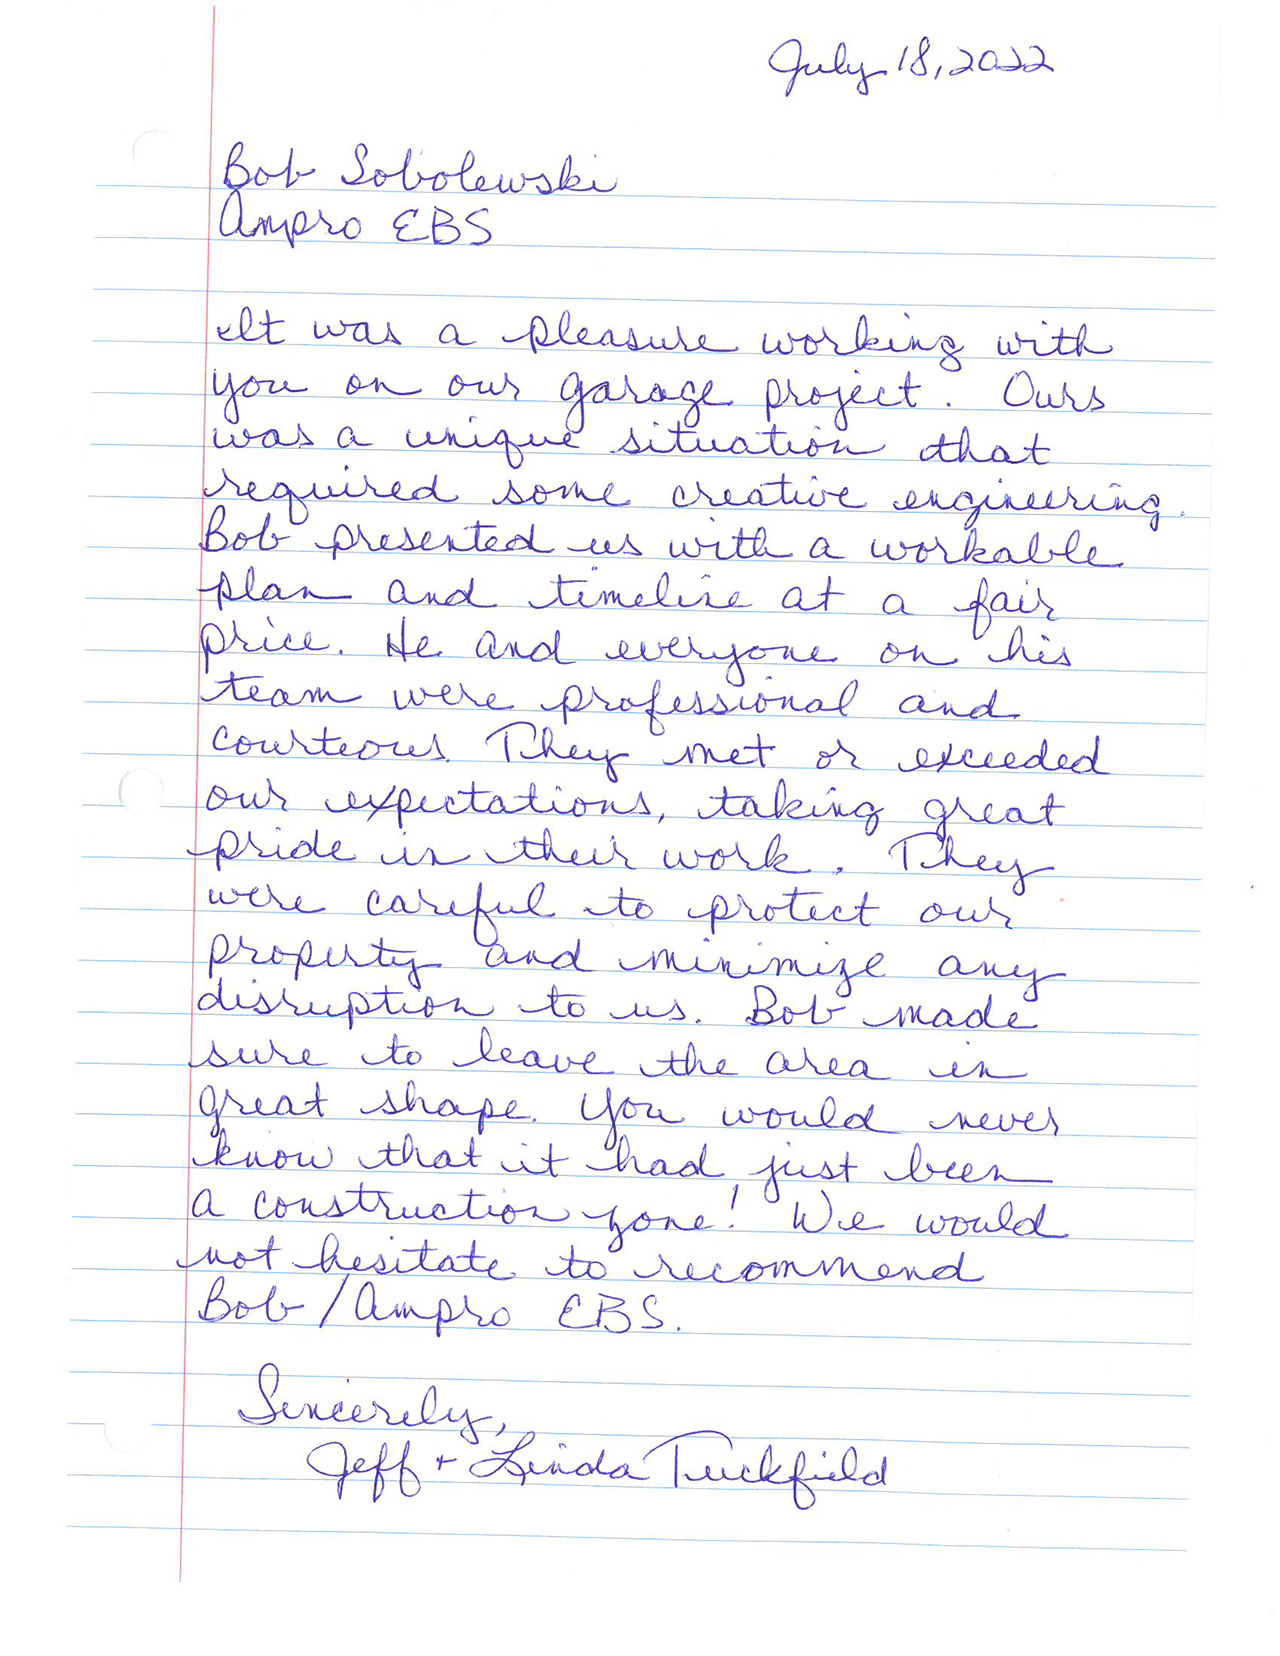 July 18, 2022
Bob Sobolewski
Ampro EBS
It was a pleasure working with
you on our garage project. Ours
was a unique situation that
required some creative engineering.
Bob presented us with a workable
plan and timeline at a fair
price. He and everyone on his
team were professional and
courteous. They met or exceeded
our expectations, taking great
pride in their work. They
were careful to protect our
property and minimize any
disruption to us. Bob made
sure to leave the area in
great shape. You would never
know that it had just been
a construction zone! We would
not hesitate to recommend
Bob/Ampro EBS.
Sincerely,
Jeff + Linda Tuckfield